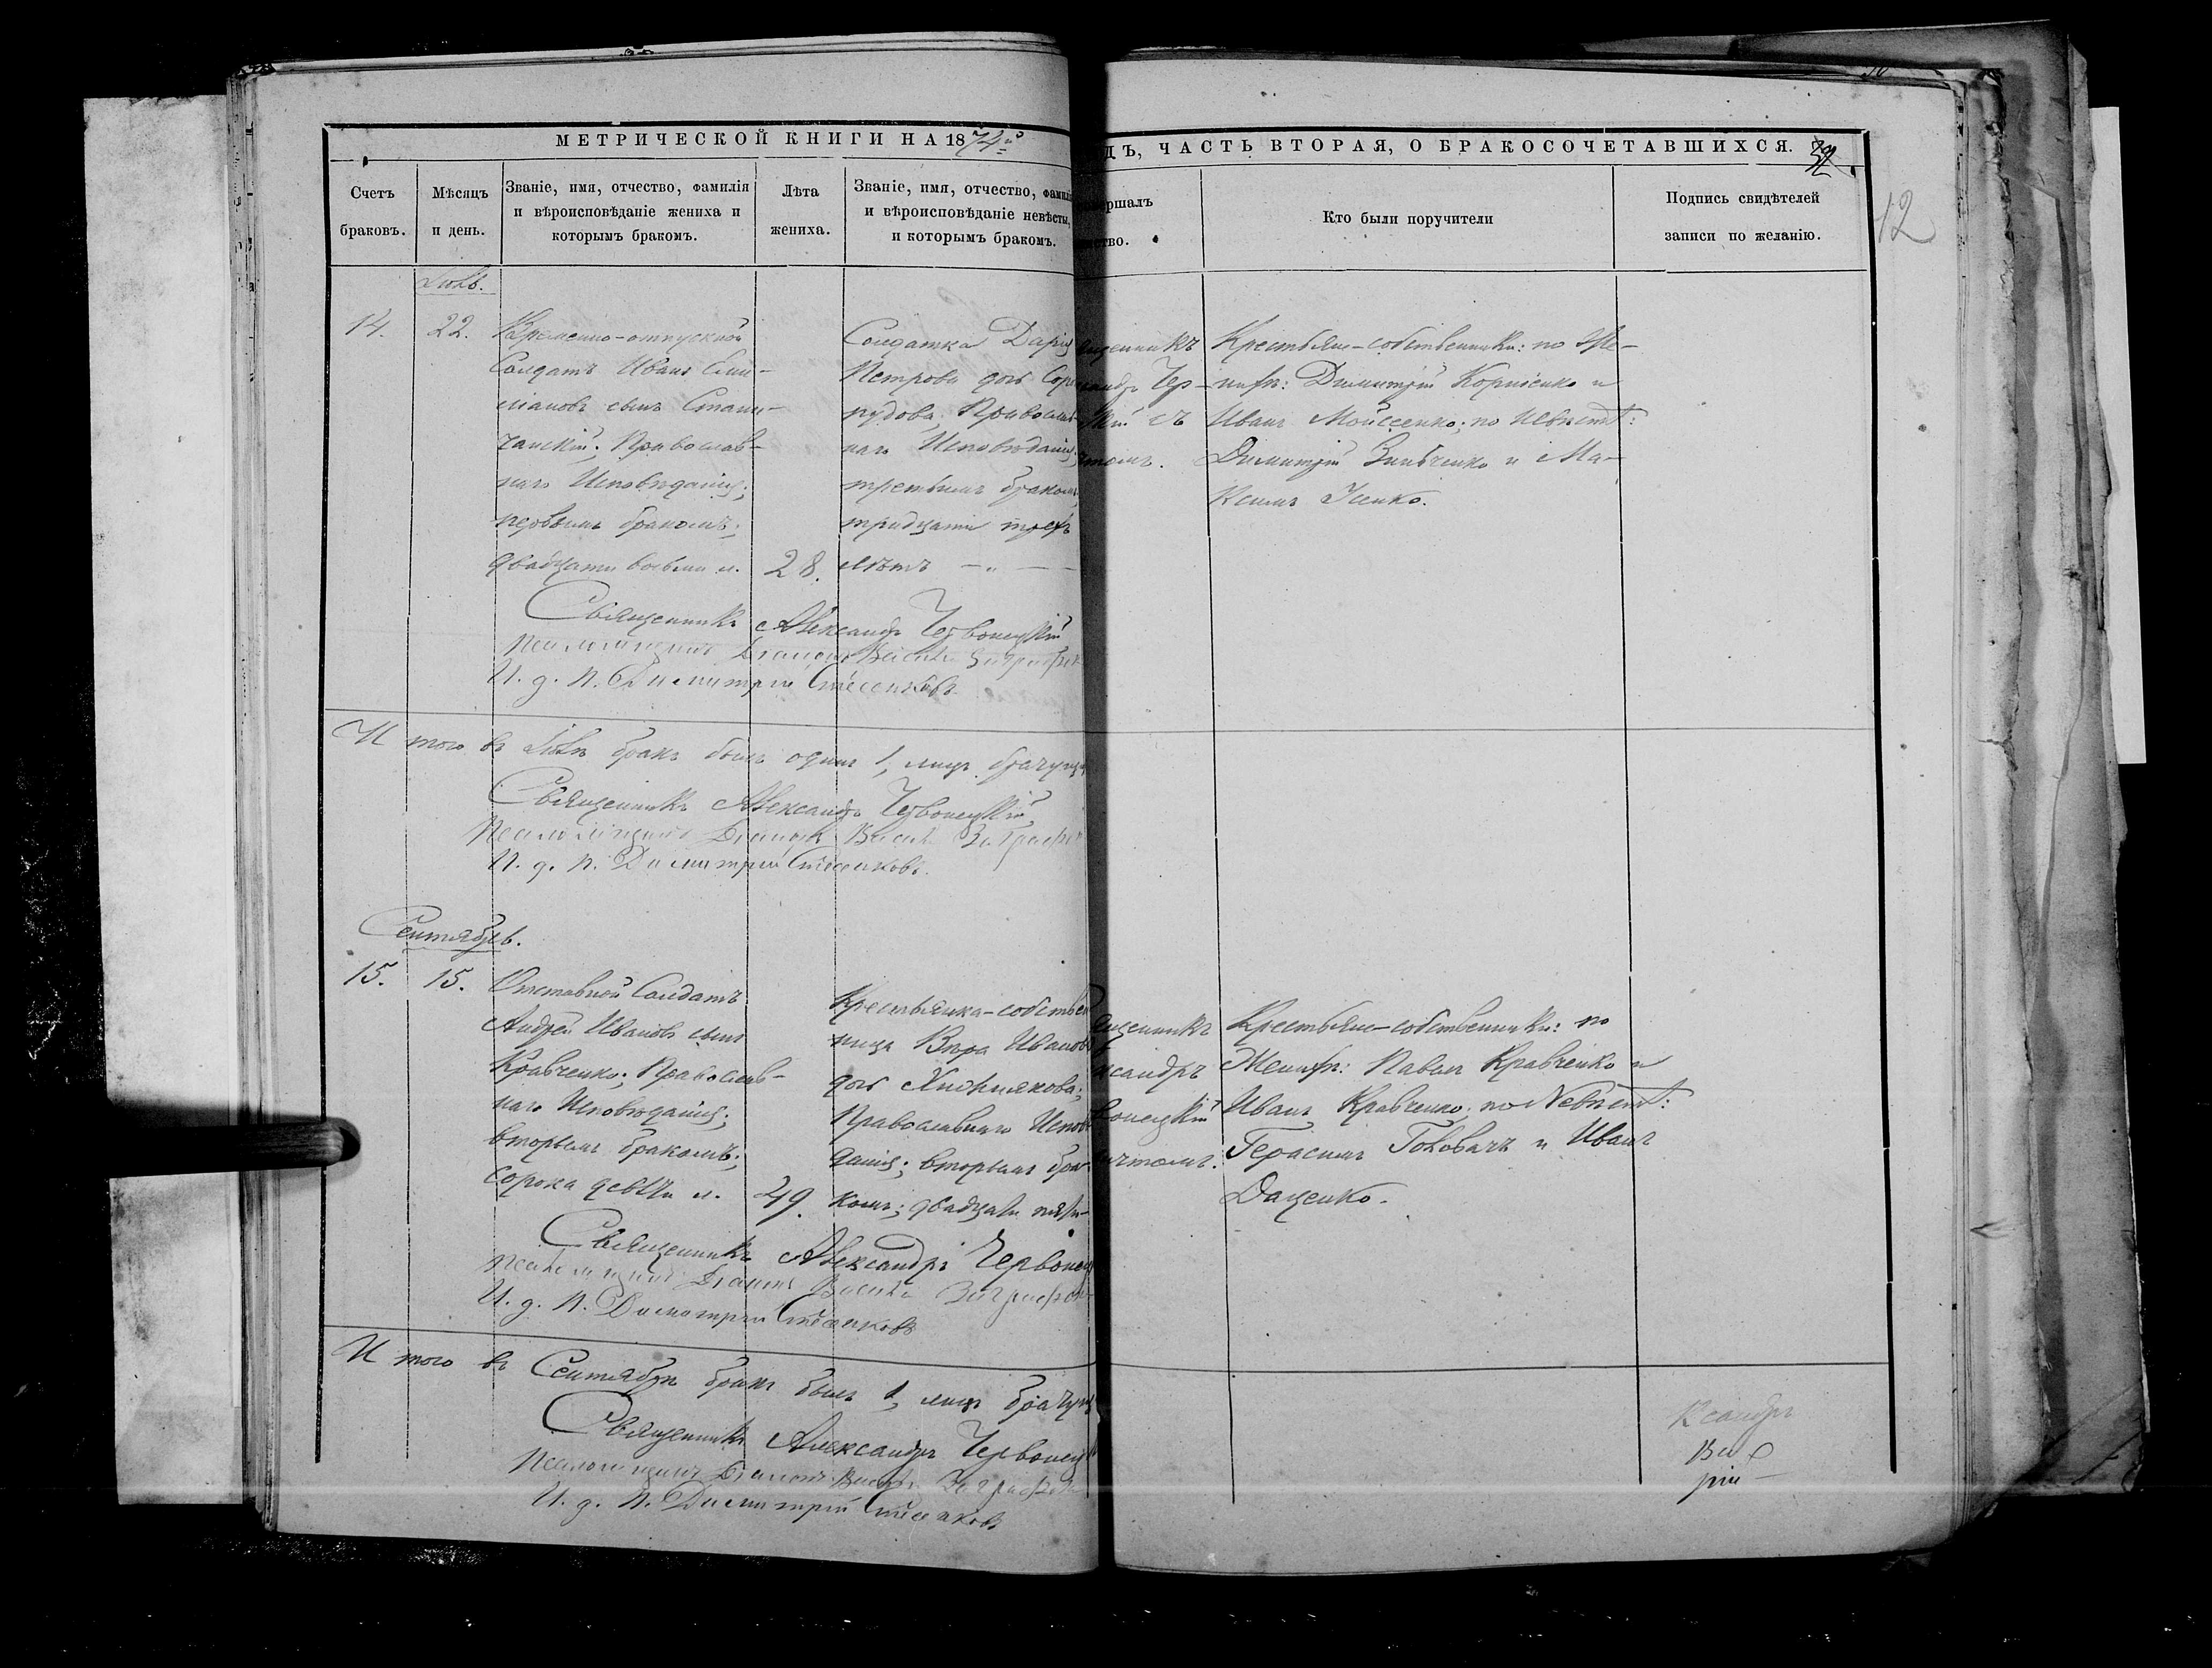 МЕТРИЧЕСКОЙ КНИГИ НА 1874й
ДЪ, ЧАСТЬ ВТОРАЯ, О БРАКОСОЧЕТАВШИХСЯ.
12
Счетъ браковъ.
Мѣсяцъ и день.
Званіе, имя, отчество, фамилія
и вѣроисповѣданіе жениха и
которымъ бракомъ.
Лѣта жениха.
Званіе, имя, отчество, фамилі
и вѣроисповѣданіе невѣсты,
и которымъ бракомъ.
вершалъ
ство.
Кто были поручители
Подпись свидѣтелей
записи по желанію.
Іюль.
14.
22.
Временно-отпускной
Солдатъ Иванъ Еми-
ліановъ сынъ Стани-
чанскій; Православ-
наго Исповѣданія;
первымъ бракомъ;
двадцати восьми л.
28.
Солдатка Дарія
Петрова дочь
пудова; Православ-
наго Исповѣданія
третьимъ бракомъ
тридцати трехъ
лѣтъ
ященникъ
сандръ Чер-
кій съ
чтомъ.
Крестьяне-собственники: по Же-
нихѣ: Димитрій Корніенко и
Иванъ Мойсеенко; по Невѣстѣ:
Димитрій Зинченко и Ма-
ксимъ Исенко.
Священникъ Александръ Червонецкій
Псаломщикъ Діаконъ Василій
И. д. п. Димитрій
И того въ Іюлѣ бракъ былъ одинъ 1, лицъ брачущ
Священникъ Александръ Червонецкій
Псаломщикъ Діаконъ Василій
И. д. п. Димитрій
Сентябрь.
15.
15.
Отставной Солдатъ
Андрей Ивановъ сынъ
Кравченко; Православ-
наго Исповѣданія;
вторымъ бракомъ;
сорока девяти л.
49.
Крестьянка-собствен
ница Вѣра Иванов
дочь Хижнякова;
Православнаго Испов
данія; вторымъ бра-
комъ; двадцати пяти
ященникъ
ксандръ
вонецкій
ичтомъ.
Крестьяне-собственники: по
Женихѣ: Павелъ Кравченко и
Иванъ Кравченко; по Невѣстѣ:
Герасимъ Головачъ и Иванъ
Даценко.
Священникъ Александръ Червонец
Псаломщикъ Діаконъ Василій
И. д. п. Димитрій
И того въ Сентябрѣ бракъ былъ 1, лицъ брачущ
Священникъ Александръ Червонец
Псаломщикъ Діаконъ Василій
И. д. п. Димитрій
ксандръ
рій